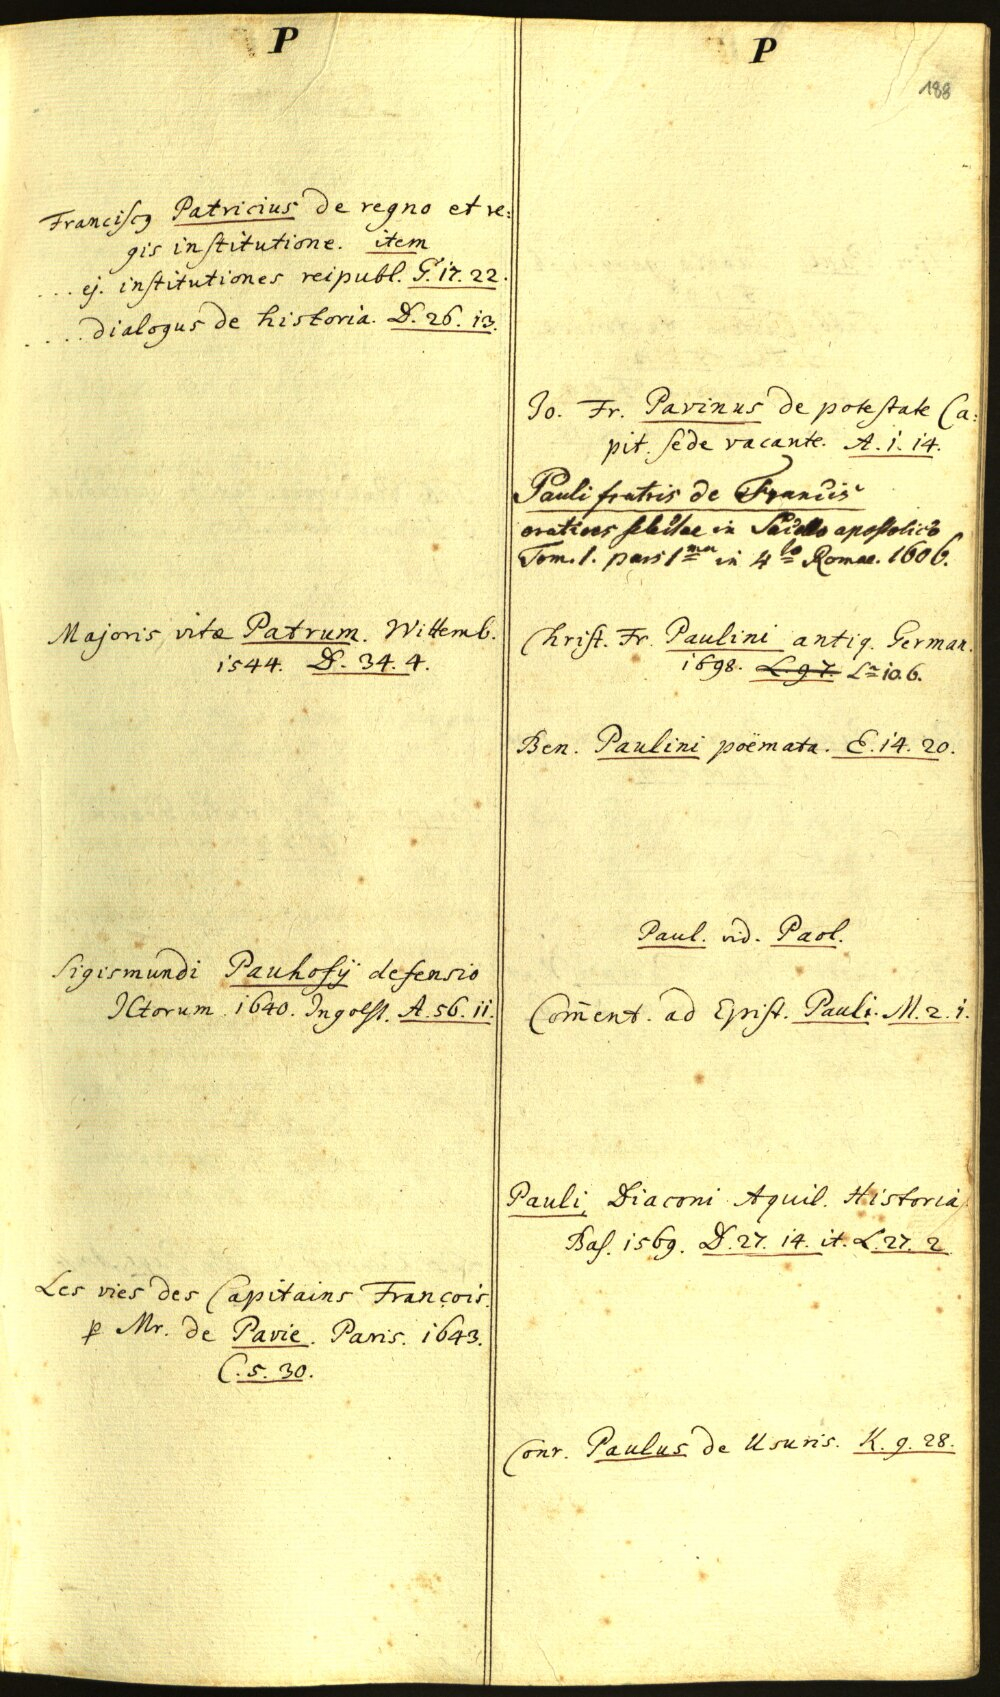 P
Franciscꝰ Patricius de regno et re:
gis institutione. item
... ej. institutiones reipubl. G. 17. 22.
.... dialogus de historia. D. 26. 13.
Majoris vitæ Patrum. Wittemb.
1544. D. 34. 4.
Sigismundi Pauhofÿ defensio
ICtorum 1640. Ingolst. A. 56. 11.
Les vies des Capitains François.
p Mr. de Pavie. Paris. 1643.
C. 5. 30.
P
188
Jo. Fr. Pavinus de potestate Ca:
pit. sede vacante. A. 1. 14.
Pauli fratris de Francis
orationes selectae in Sacello apostolico
Tom. 1. pars 1ma in 4to Romae. 1606.
Christ. Fr. Paulini antiq. German.
1698. L. 9 7. La 10. 6.
Ben. Paulini poëmata. E. 14. 20.
Paul. vid. Paol.
Com̄ent. ad Epist. Pauli. M. 2. 1.
Pauli Diaconi Aquil. Historia
Bas. 1569. D. 27. 14. it. L. 27. 2
Conr. Paulus de Usuris. K. 9. 28.